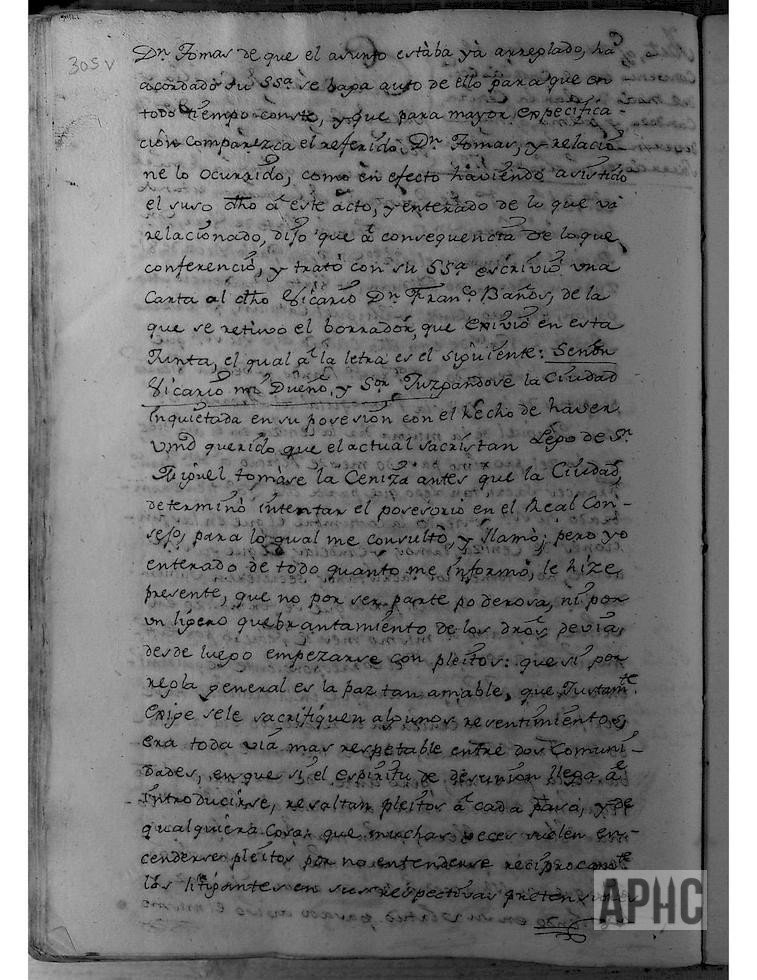 305v
Dn. Tomas de que el asunto estàba yà arreglado, ha
acordado su SSa. se haga auto de ello para que en
todo tiempo conste, y que para mayor expecifica-
ción comparezca el referido Dn. Tomas, y relacio-
ne lo ocurrido, como en efecto haviendo asistido
el suso dho à este acto, y enterado de lo que và
relacionado, dijo que à consequencia de lo que
conferenciò, y tratò con su SSa. escriviò una
Carta al dho Vicario Dn. Franco. Baños, de la
que se retuvo el borrador, que exiviò en esta
Junta, el qual à la letra es el siguiente: Señor
Vicario mi Dueño, y Sor. Juzgandose la Ciudad
inquietada en su posesión con el hecho de haver
Vmd querido que el actual sacristan Lego de Sn.
Miguel tomàse la Ceniza antes que la Ciudad,
determinò intentar el posesorio en el Real Con-
sejo, para lo qual me consultò, y llamò; pero yo
enterado de todo quanto me informò, le hize
presente, que no por ser parte poderosa, ni por
un ligero quebrantamiento de los dros, devia,
desde luego empezarse con pleitos: que si por
regla general es la paz tan amable, que Justamte.
exige sele sacrifiquen algunos resentimientos,
era toda via mas respetable entre dos Comuni-
dades, en que si el espiritu de desunion llega à
introducirse, resultan pleitos à cada paso, y de
qualquiera cosa: que muchas veces suelen en-
cenderse pleitos por no entenderse reciprocamte.
los litigantes en sus respectivas pretensiones
APHC